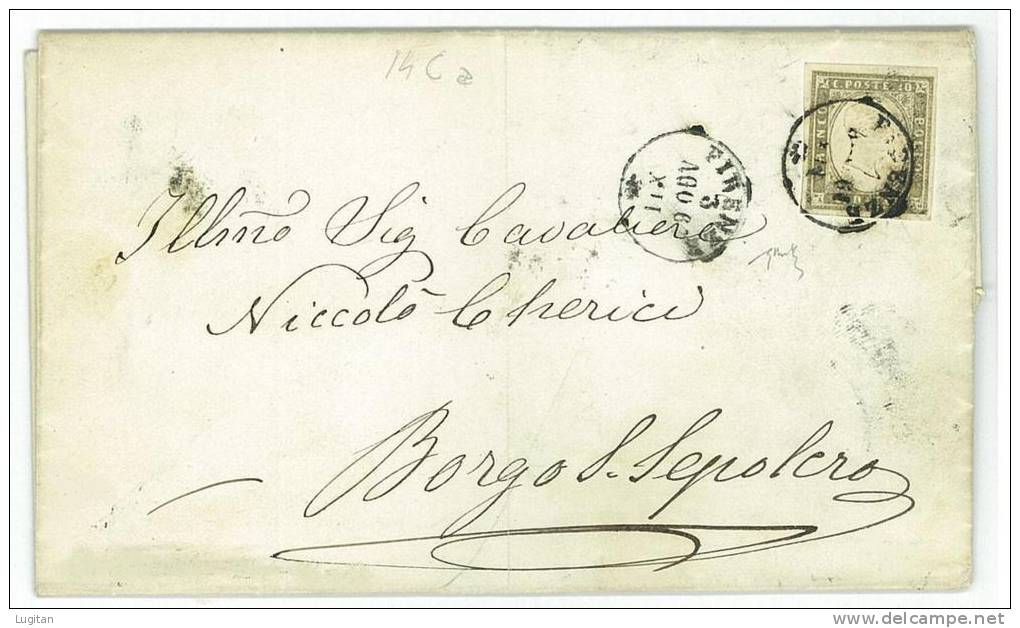 14 C a
C. POSTE 10
FRANCO
FIRENZE
FIRENZE
3
AGO 6
XII
Illmo Sig Cavaliere
Niccolò Cherici
Borgo S. Sepolcro
Lugitan
www.delcampe.net